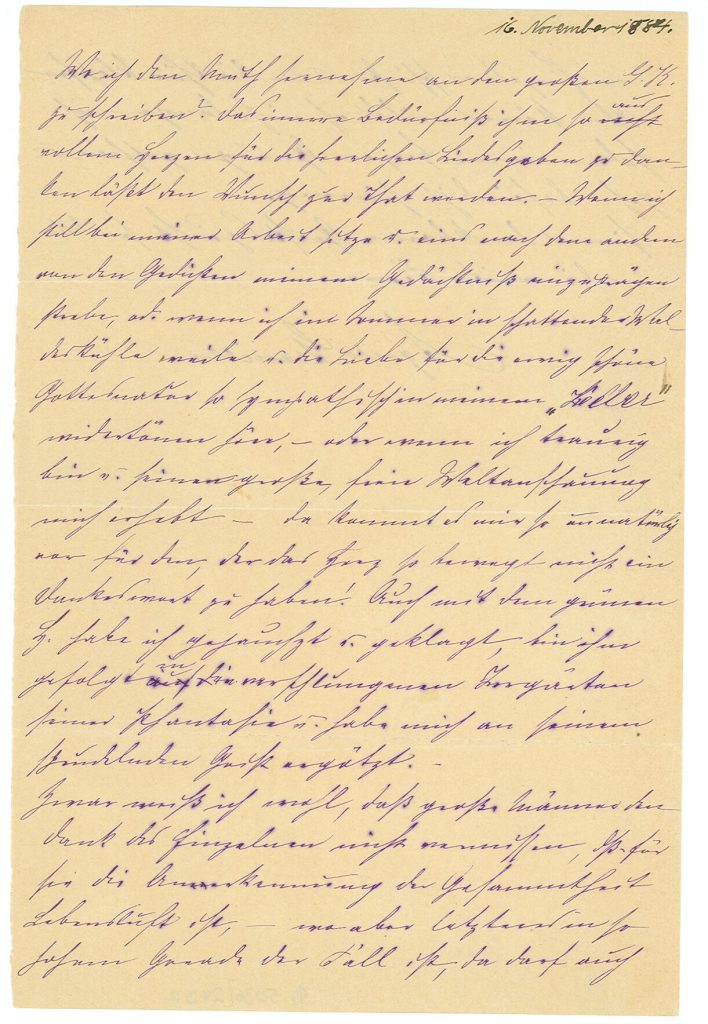 16. November 1884.
Wo ich den Muth hernehme an den großen G. K.
zu schreiben? Das innere Bedürfniß ihm so recht aus
vollem Herzen für die herrlichen Liedesgaben zu dan-
ken läßt den Wunsch zur That werden. – Wenn ich
still bei meiner Arbeit sitze u. eins nach dem andern
von den Gedichten meinem Gedächtniß einzuprägen
strebe, od. wenn ich im Sommer in schattender Wal-
deskühle weile u. die Liebe für die ewig schöne
Gottesnatur so sympathisch in meinem „Keller"
widertönen höre, – oder wenn ich traurig
bin u. seine große, freie Weltanschauung
mich erhebt – da kommt es mir so unnatürlich
vor für den, der das Herz so bewegt nicht ein
Dankeswort zu haben! Auch mit dem grünen
H. habe ich gejauchzt u. geklagt, bin ihm
gefolgt in die verschlungenen Irrgärten
seiner Phantasie u. habe mich an seinem
sprudelnden Geist ergötzt. –
Zwar weiß ich wohl, daß große Männer den
Dank des Einzelnen nicht vermissen, daß für
sie die Anerkennung der Gesammtheit
Lebensluft ist, – wo aber letzteres in so
hohem Grade der Fall ist, da darf auch